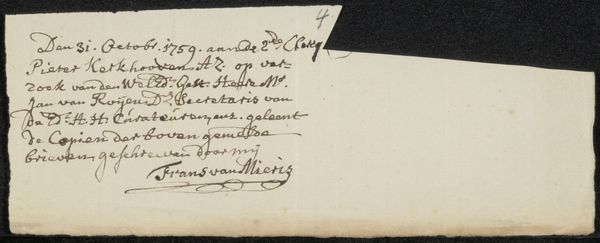 4
Den 31. Octobr. 1759. aan de 2de Clercq
Pieter Kerkhooven, AZ. op ver-
zoek van den Wel Ed. Gest. Heere Mr.
Jan van Royen, Dr. Secretaris van
de Ed. H. H. Curateuren, enz. geleent
de Copien der boven gemelde
brieven, geschreven door mij
Frans van Mieris